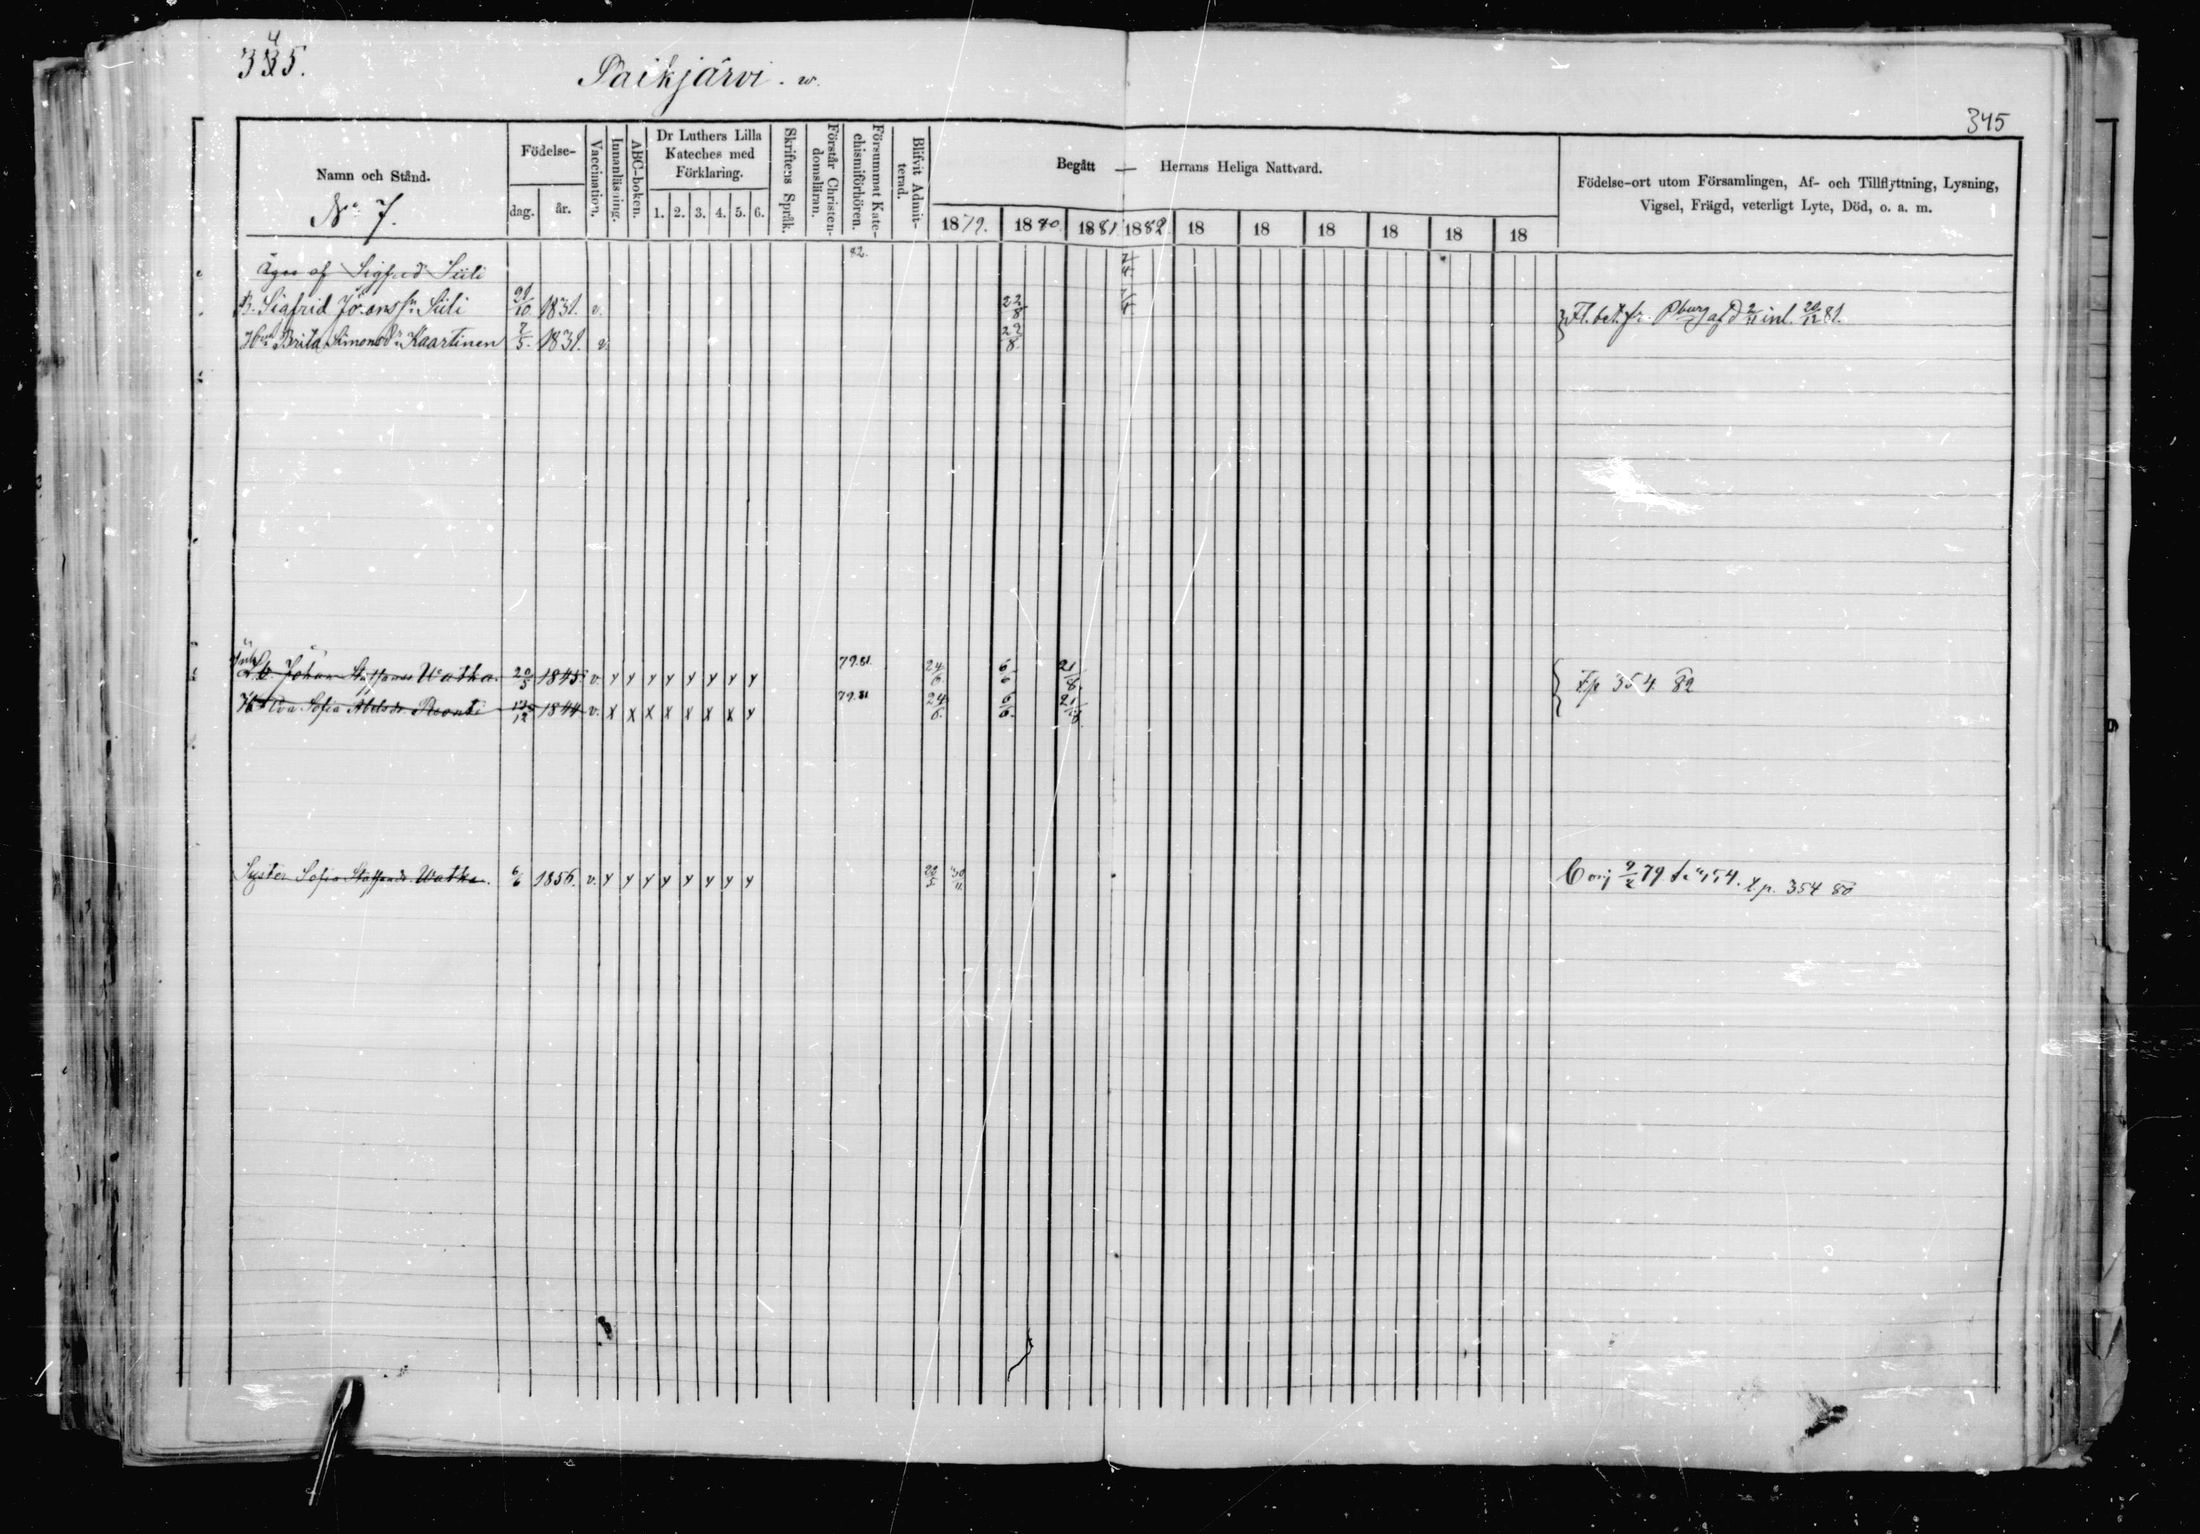 345.
Paikjärvi. w.
345
Namn och Stånd.
No 7.
Födelse-
dag.
år.
Vaccination.
Innanläsning.
ABC-boken.
Dr Luthers Lilla
Kateches med
Förklaring.
1. 2. 3. 4. 5. 6.
Skriftens Språk.
Förstår Christen-
domsläran.
Försummat Kate-
chismiförhören.
Blifvit Admit-
terad.
Begått — Herrans Heliga Nattvard.
1879. 1880. 1881 1882. 18 18 18 18 18 18
Födelse-ort utom Församlingen, Af- och Tillflyttning, Lysning,
Vigsel, Frägd, veterligt Lyte, Död, o. a. m.
Äges af Sigfrid Siili 82.
B. Sigfrid Johanss:n Siili 1831. v. 22/8 Fl. bet. fr. Pburg af d 2/11 inl. 20/12 81.
H:u Brita Simonsd:r Kaartinen 7/5. 1831. v. 22/8.
Johan Staffanss Watka. 22/5 1845 v. y y y y y y y y 79.81 24/6 6/6 21/8 Fp 354. 82
H:u Eva Sofia Abelsdr Ronti 17/12 1844 v. x x x x x x x y 79.81 24/6. 6/6. 21/8.
Syster Sofia Staffansdr Watka. 6/6 1856. v. y y y y y y y y 30/11 79 t.p. 354 80